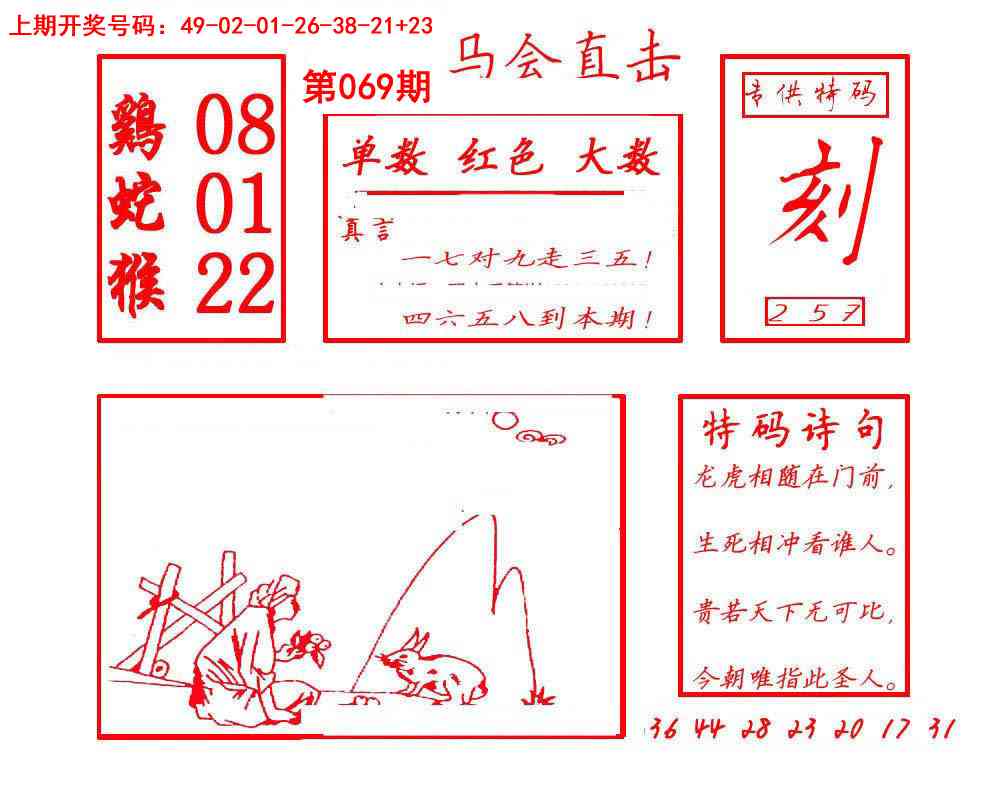 上期开奖号码：49-02-01-26-38-21+23
马会直击
第069期
鷄 08
蛇 01
猴 22
单数 红色 大数
真言
一七对九走三五!
四六五八到本期!
专供特码
刻
2 5 7
特码诗句
龙虎相随在门前,
生死相冲看谁人。
贵若天下无可比,
今朝唯指此圣人。
36 44 28 23 20 17 31